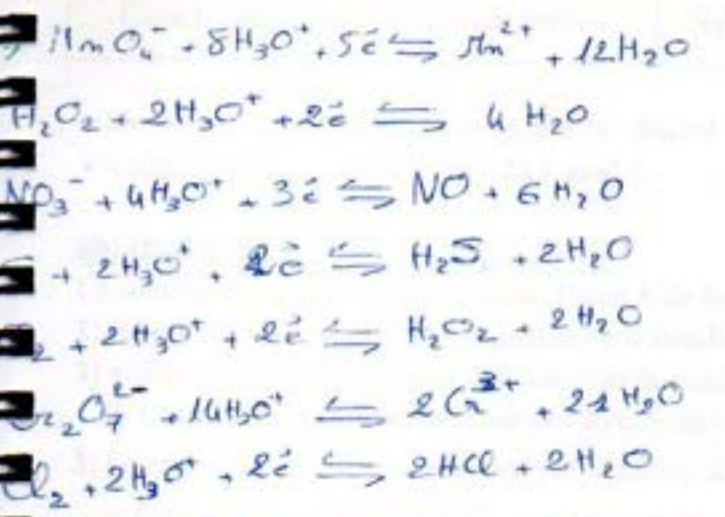 MnO₄⁻ + 8H₃O⁺ + 5é ⇌ Mn²⁺ + 12H₂O
H₂O₂ + 2H₃O⁺ + 2é ⇌ 4 H₂O
NO₃⁻ + 4H₃O⁺ + 3é ⇌ NO + 6 H₂O
+ 2H₃O⁺ + 2é ⇌ H₂S + 2H₂O
₂ + 2H₃O⁺ + 2é ⇌ H₂O₂ + 2H₂O
Cr₂O₇²⁻ + 14H₃O⁺ ⇌ 2Cr³⁺ + 21H₂O
Cl₂ + 2H₃O⁺ + 2é ⇌ 2HCl + 2H₂O